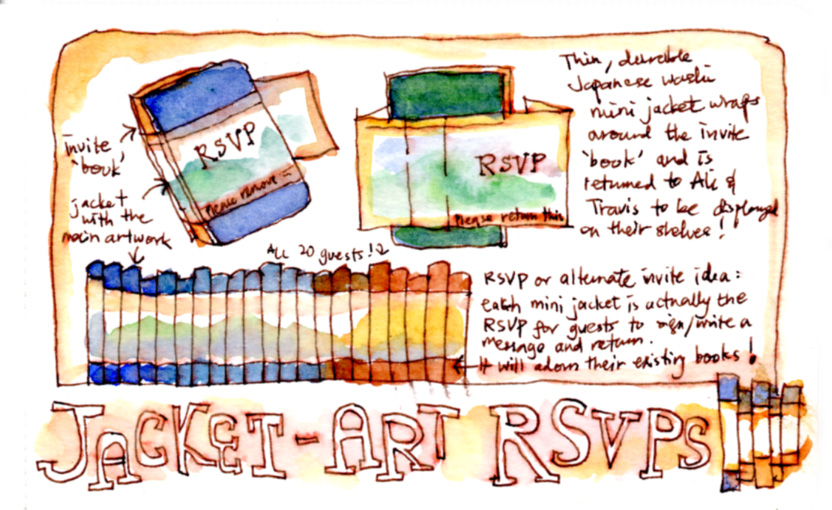 Thin, durable
Japanese washi
mini jacket wraps
around the invite
'book' and is
returned to Ali &
Travis to be displayed
on their shelves!
invite
'book'
jacket
with the
main artwork
RSVP
Please remove
RSVP
Please return this
ALL 20 guests!
RSVP or alternate invite idea:
each mini jacket is actually the
RSVP for guests to sign/write a
message and return.
It will adorn their existing books!
JACKET-ART RSVPS